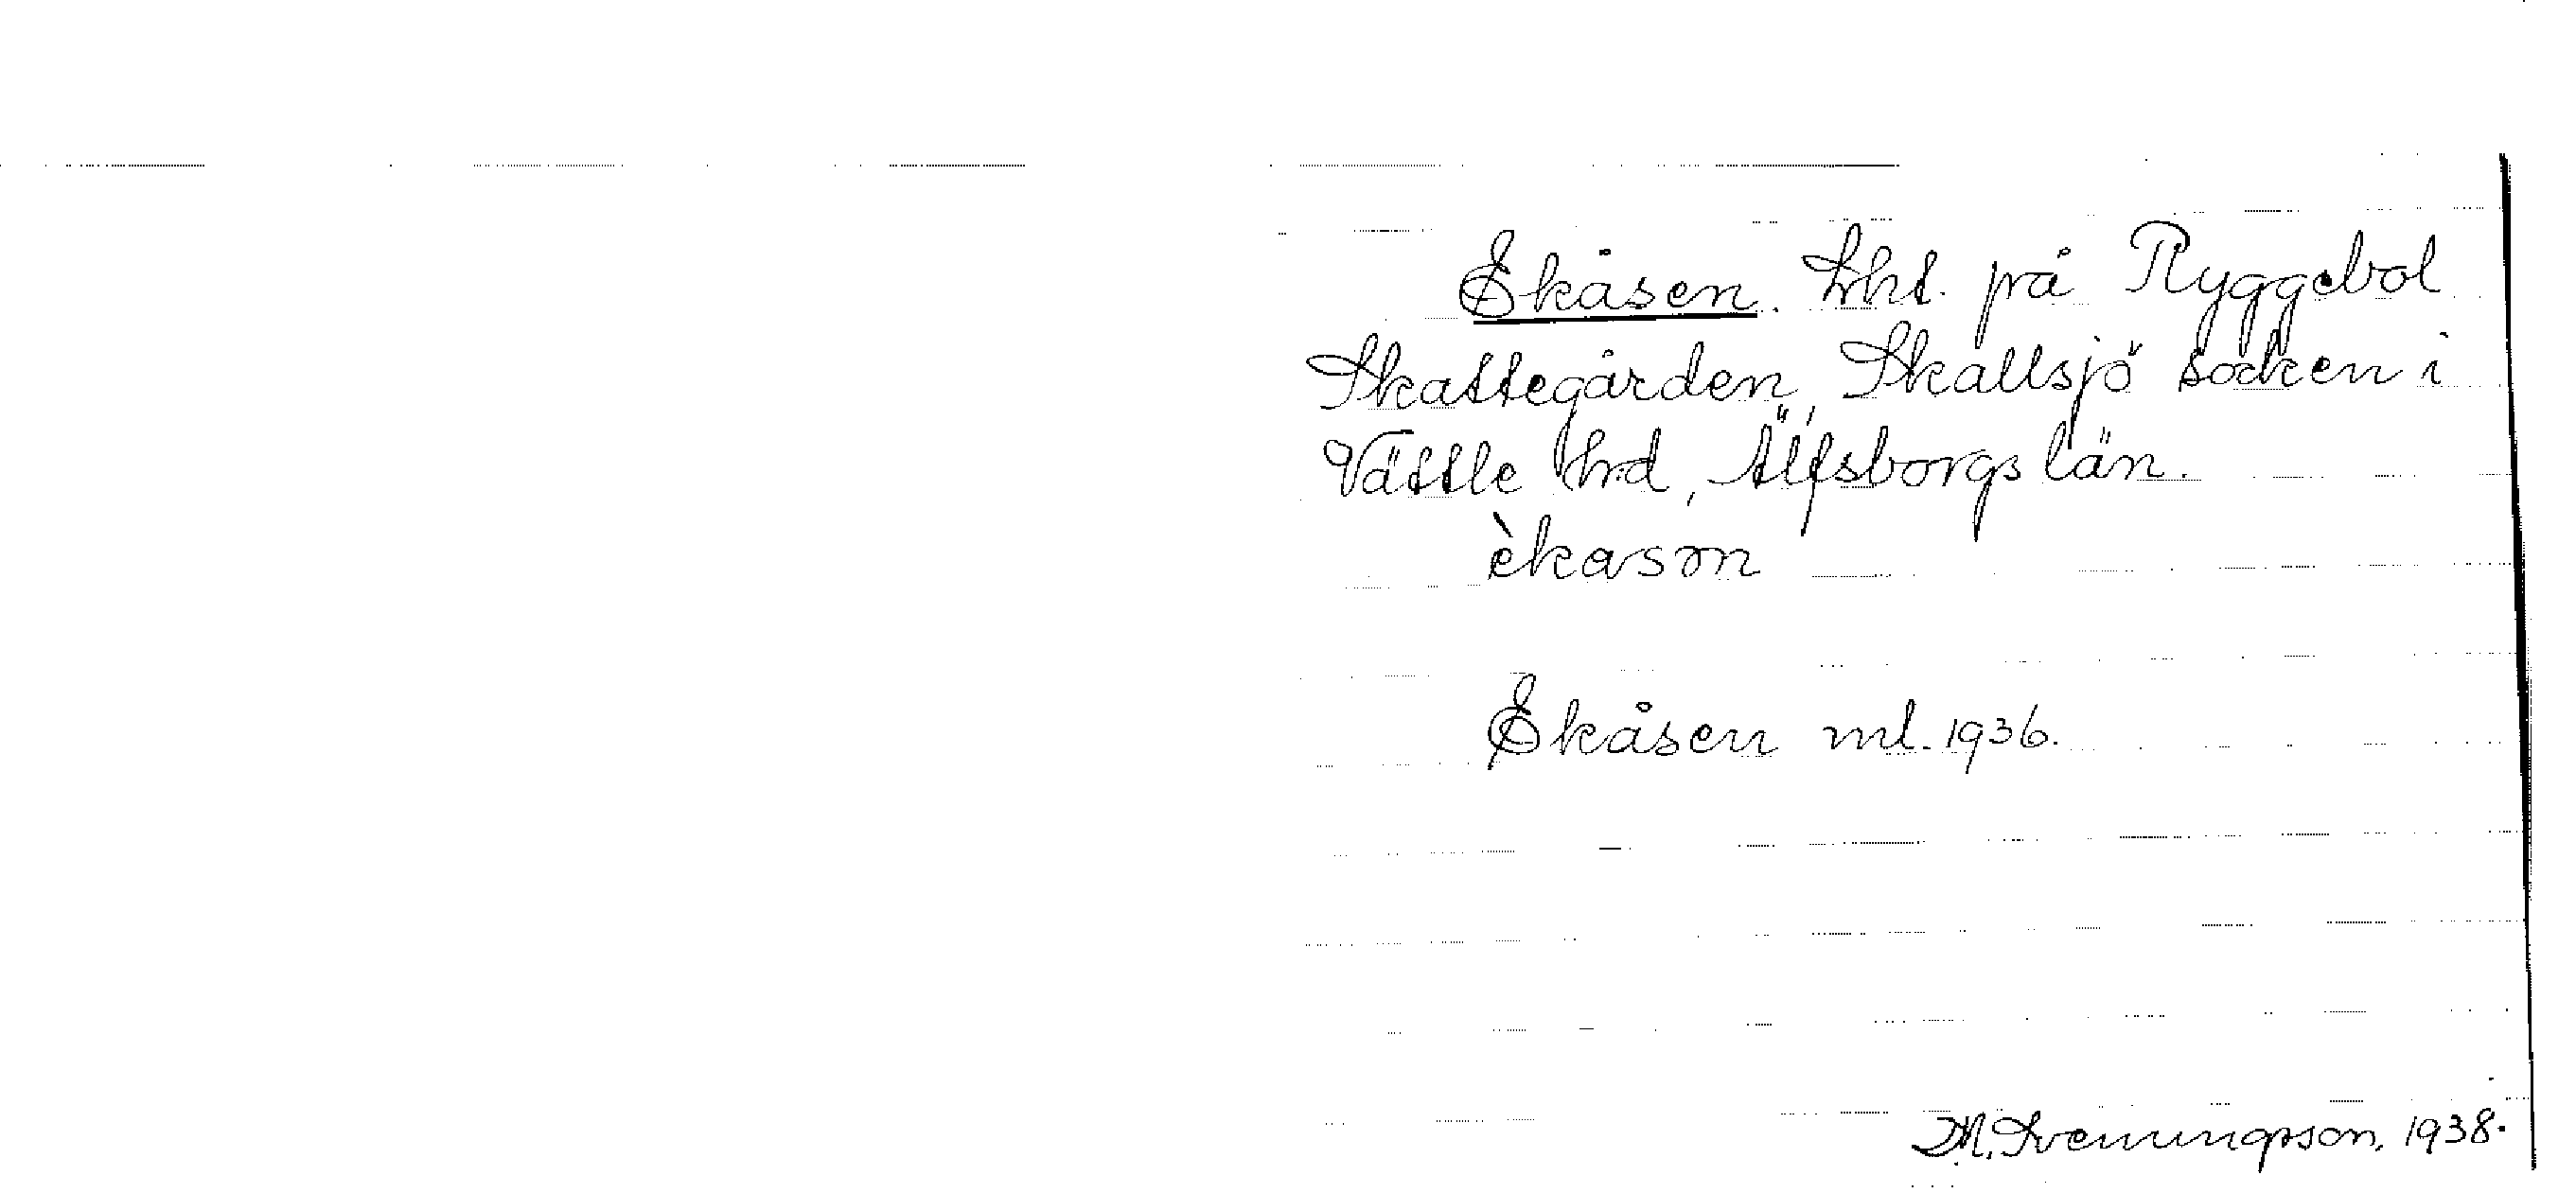 Ekåsen. Lht. på Ryggebol
Skattegården, Skallsjö socken i
Vättle hrd, Älfsborgs län.
èkasɔn
Ekåsen ml. 1936.
M. Svenungsson, 1938.